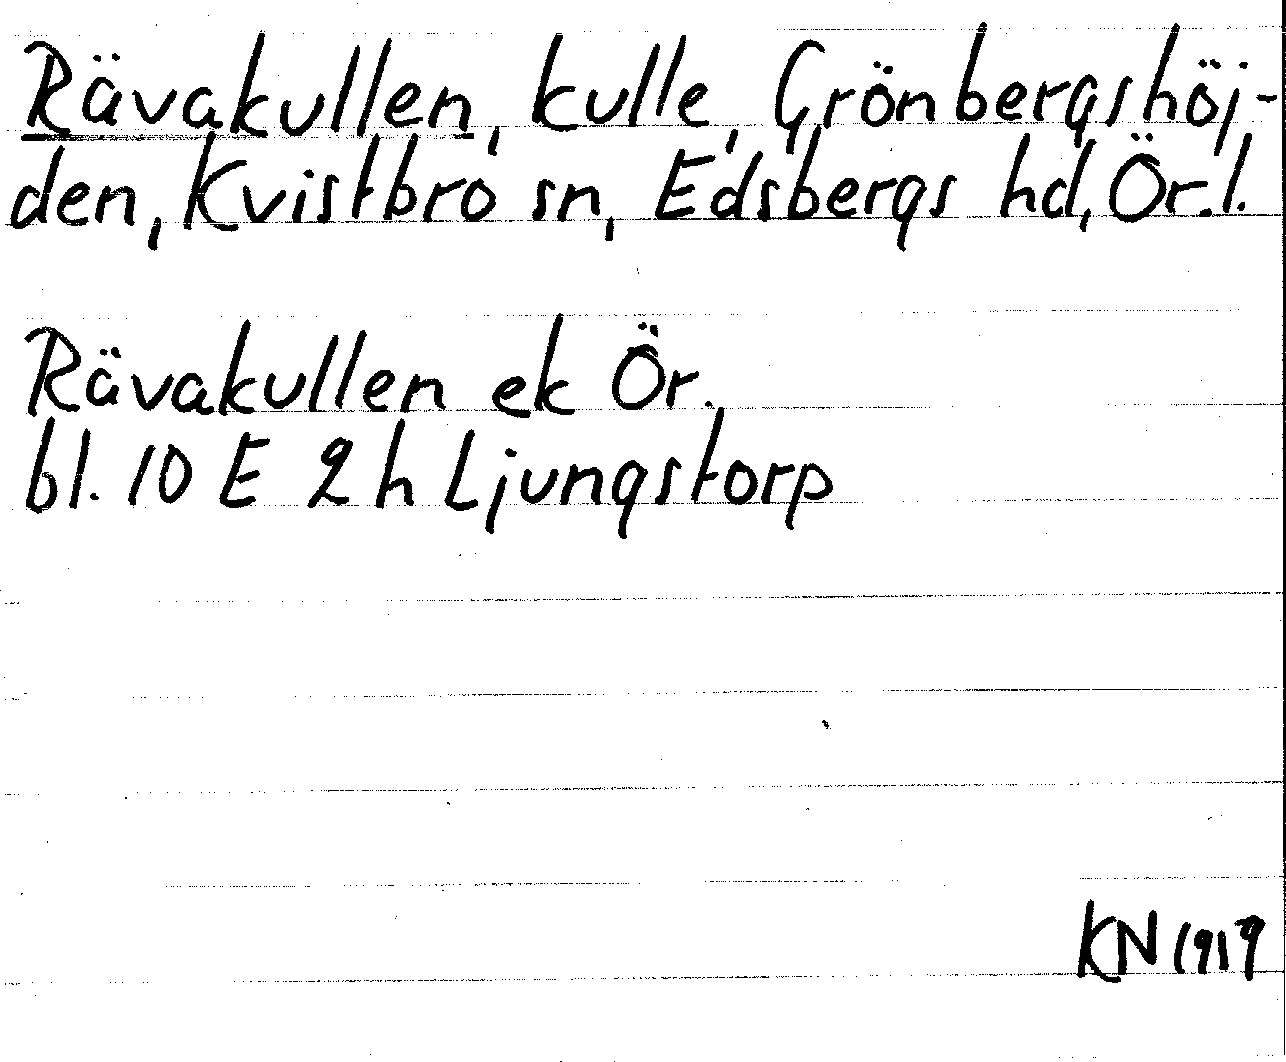 Rävakullen, kulle, Grönbergshöj-
den, Kvistbro sn, Edsbergs hd, Ör.l.
Rävakullen ek Ör.
bl. 10 E 2 h Ljungstorp
KN 1919